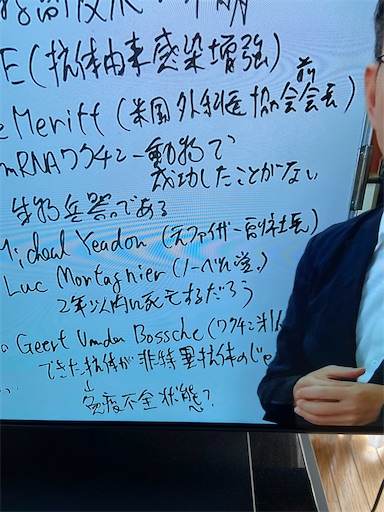 E(抗体由来感染増強)
e Meritt(米国外科医協会前会長)
mRNAワクチン→動物で
成功したことがない
生物兵器である
Michael Yeadon(元ファイザー副社長)
Luc Montagnier(ノーベル賞)
2年以内に死亡するだろう
Geert Vanden Bossche(ワクチン
できた抗体が非特異抗体のじゃ
↓
免疫不全状態?